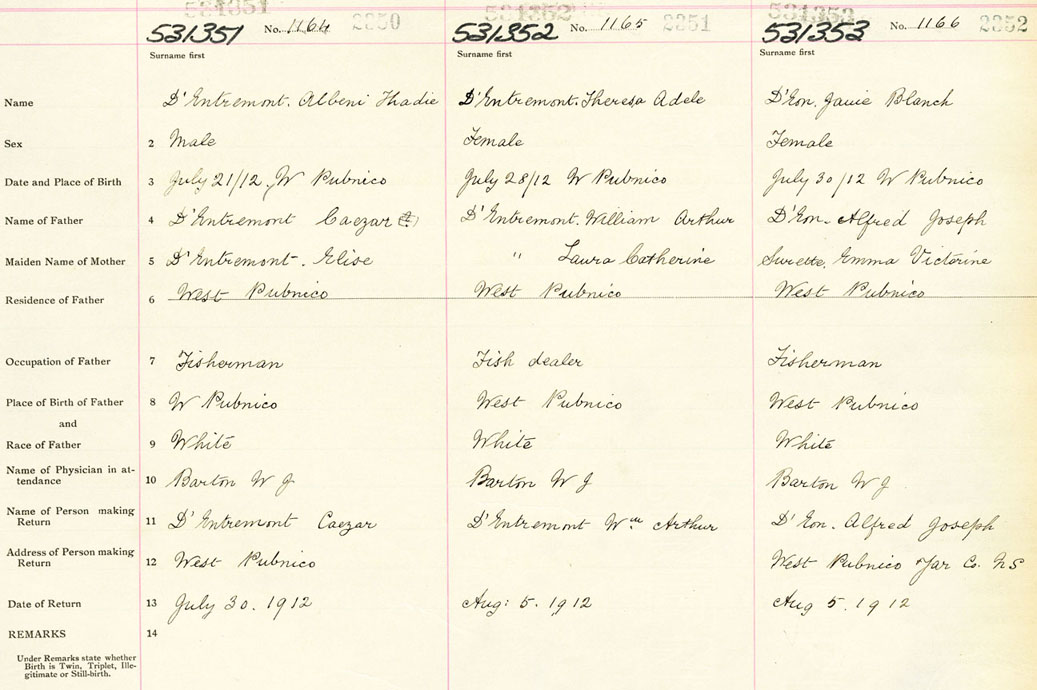 531351 531352 531353
531351 No. 1164 2350 531352 No. 1165 2351 531353 No. 1166 2352
Surname first Surname first Surname first
Name D'Entremont. Albeni Thadie D'Entremont. Theresa Adele D'Eon. Janie Blanch
Sex 2 Male Female Female
Date and Place of Birth 3 July 21/12, W Pubnico July 28/12 W Pubnico July 30/12 W Pubnico
Name of Father 4 D'Entremont Caezar (?) D'Entremont. William Arthur D'Eon. Alfred Joseph
Maiden Name of Mother 5 D'Entremont. Elise " Laura Catherine Surette. Emma Victorine
Residence of Father 6 West Pubnico West Pubnico West Pubnico
Occupation of Father 7 Fisherman Fish dealer Fisherman
Place of Birth of Father 8 W Pubnico West Pubnico West Pubnico
and
Race of Father 9 White White White
Name of Physician in at-
tendance 10 Barton W J Barton W J Barton W J
Name of Person making
Return 11 D'Entremont Caezar D'Entremont Wm Arthur D'Eon. Alfred Joseph
Address of Person making
Return 12 West Pubnico West Pubnico Yar Co. NS
Date of Return 13 July 30. 1912 Aug: 5. 1912 Aug 5. 1912
REMARKS 14
Under Remarks state whether
Birth is Twin, Triplet, Ille-
gitimate or Still-birth.